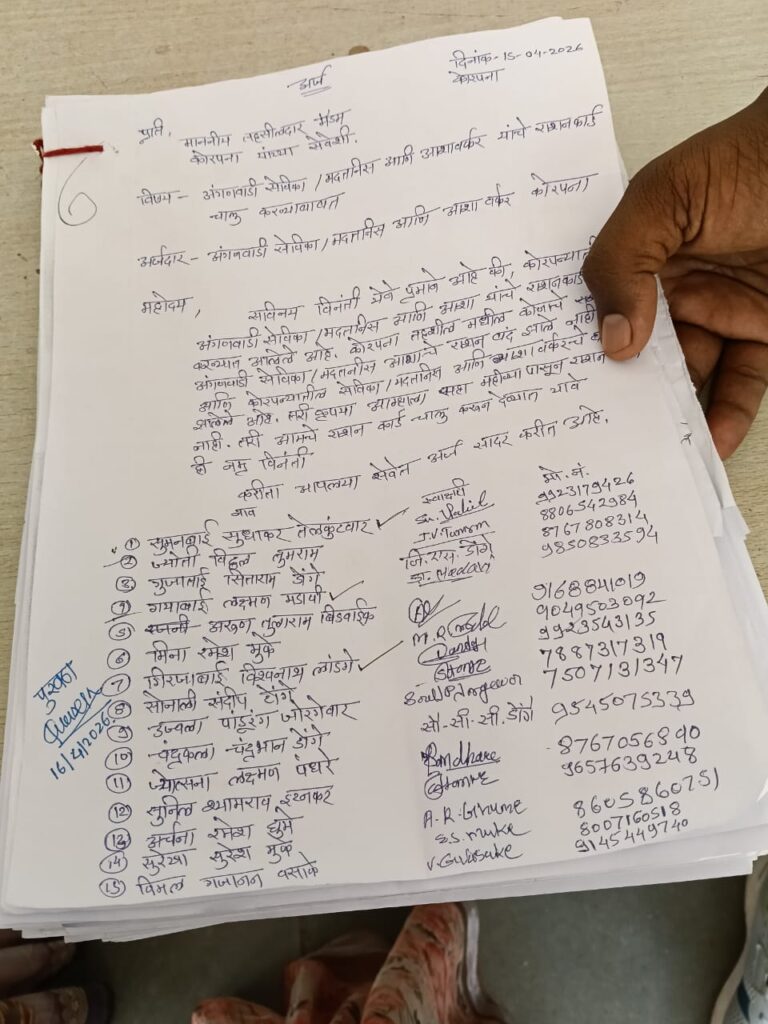 अर्ज
दिनांक-15-04-2026
कोरपना
प्रति,
माननीय तहसीलदार मॅडम
कोरपना यांच्या सेवेशी.
विषय - अंगणवाडी सेविका/मदतनिस आणि आशावर्कर यांचे राशनकार्ड
चालु करन्याबाबत
अर्जदार - अंगनवाडी सेविका/मदतनिस आणि आशा वर्कर कोरपना
महोदय,
सविनय विनंती येने प्रमाने आहे की, कोरपन्याती
अंगनवाडी सेविका/मदतनिस आणि आशा यांचे राशनकार्ड
करन्यात आलेले आहे. कोरपना तहशील मधील कोनाचे
अंगनवाडी सेविका/मदतनीस आशाचे राशन बंद झाले नाही
आणि कोरपन्यातील सेविका/मदतनिस आणि आशा वर्करचे
झालेले आहे. तरी कृपया आम्हाला सहा महीन्या पासुन राशन
नाही. तरी आमचे राशन कार्ड चालु करून देव्यात यावे
ही नम्र विनंती
करीता आपल्या सेवेत अर्ज सादर करीत आहे.
नाव स्वाक्षरी मो.नं.
① सुमनबाई सुधाकर तेलकुंटवार 9923179426
② ज्योती विठ्ठल तुमराम J.V.Tumram 8806542984
③ गुजाताई सिताराम डोंगे जि.एस.डोंगे 8767808314
④ गयाबाई लक्ष्मण मडावी 9850833594
⑤ अरुन तुळाराम बिडवाईक 9168841019
⑥ मिना रमेश मुके 9049503092
⑦ गिरजाबाई विश्वनाथ लांडगे 9923543135
⑧ सोनाली संदीप टोंगे 7887317319
⑨ उज्वला पांडूरंग जोरगेवार 7507131347
⑩ चंद्रकला चंद्रभान डोंगे सौ.सी.सी.डोंगे 9545075339
⑪ ज्योत्सना लक्ष्मण पंधरे Pandhare 8767056890
⑫ सुनिल श्यामराव 9657639248
⑬ अर्चना रमेश घुमे A.R.Ghume 8605860751
⑭ सुरेखा सुरेश मुके S.S.Muke 8007160518
⑮ विमल गजानन वसाके V.G.Wasake 9145449740
6
पुरवठा
16/4/2026